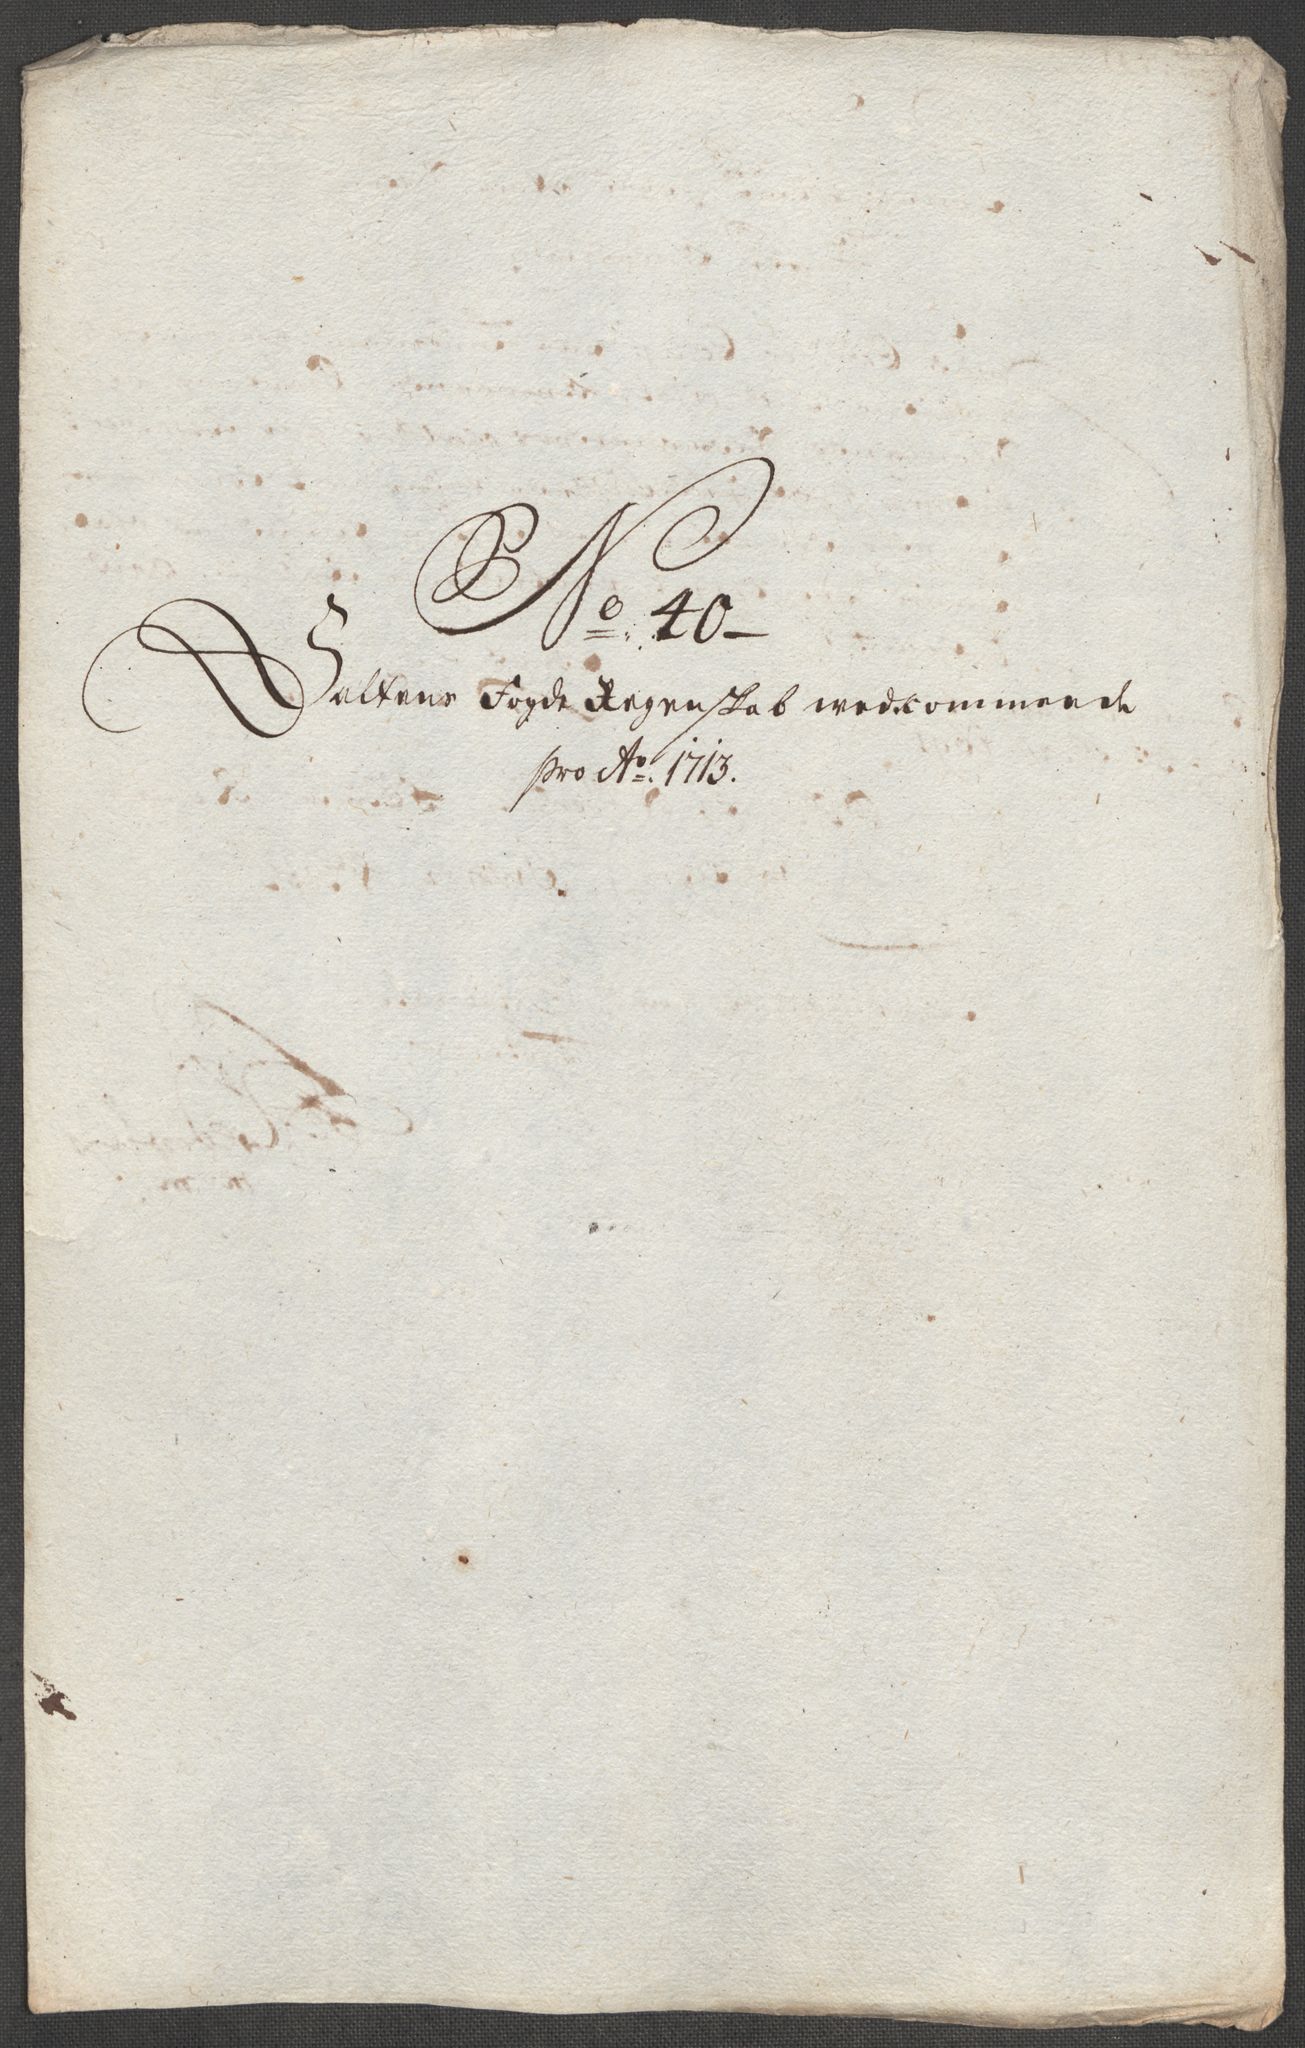 No. 40-
Saltens Fogde Regenskab wedkommende
pro Ao. 1713.